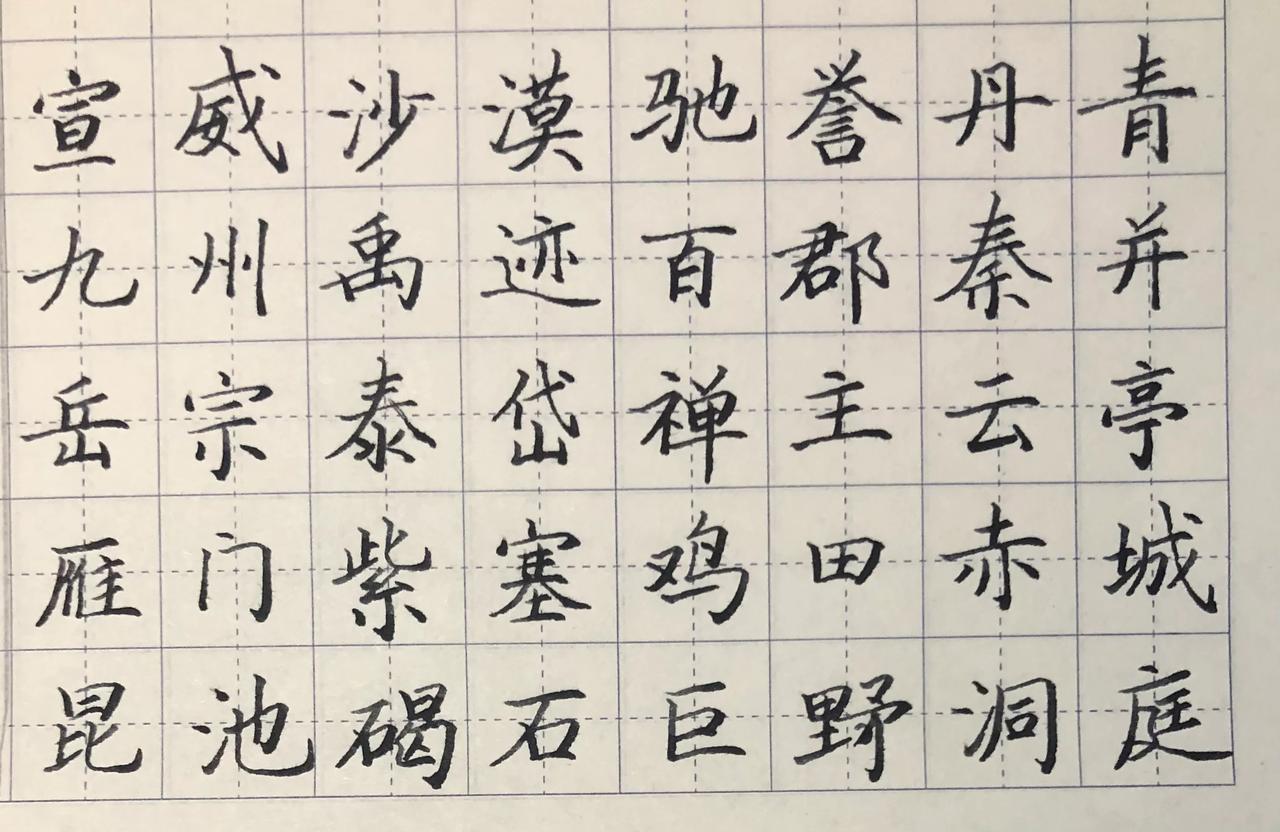 宣威沙漠驰誉丹青
九州禹迹百郡秦并
岳宗泰岱禅主云亭
雁门紫塞鸡田赤城
昆池碣石巨野洞庭